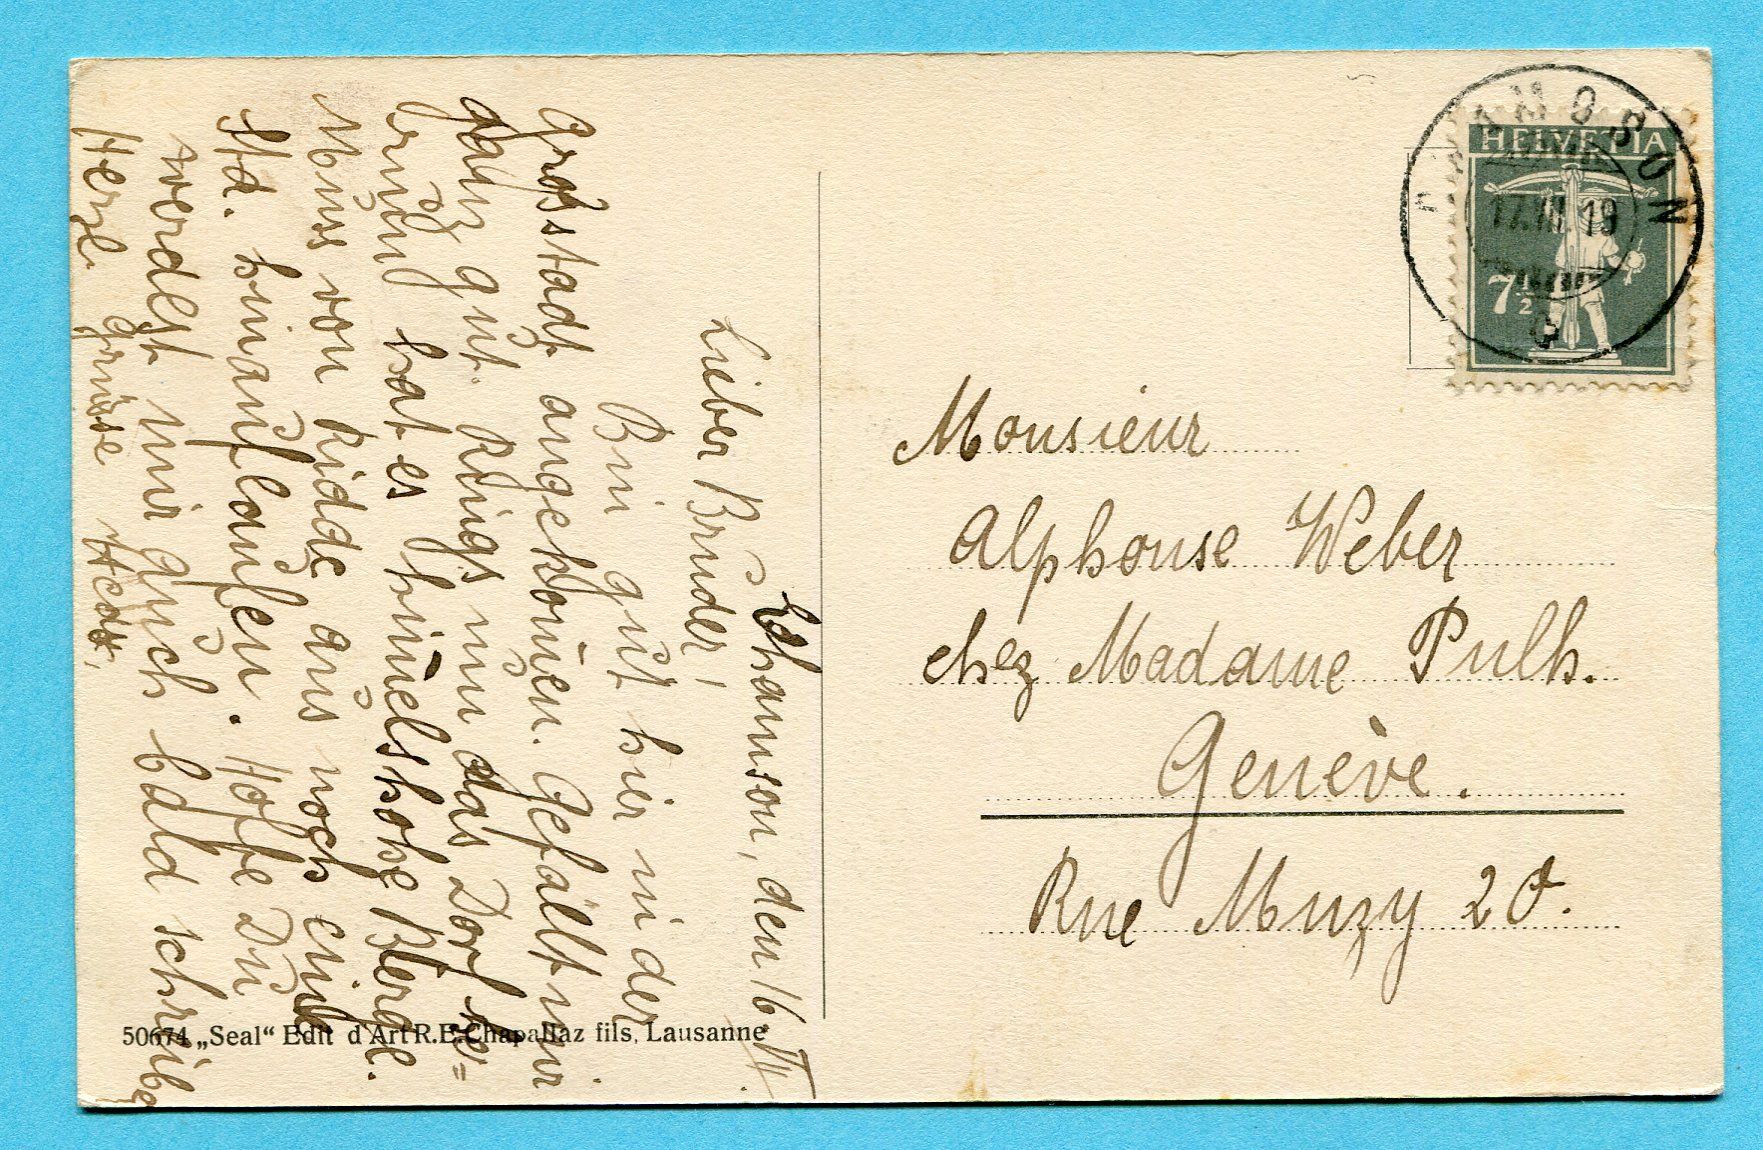 Chamson, den 16. VII.
Lieber Bruder,
Bin gut hier in der
Grosstadt angekom̄en. Gefällt mir
ganz gut. Rings um das Dorf he=
rum hat es him̄elshohe Berge.
Muss von Ridde aus noch eine
Std. hinauflaufen. Hoffe Du
werdest mir auch bald schreibe
Herzl. Grüsse
50674 „Seal“ Edit d'Art R.E. Chapallaz fils, Lausanne
CHAMOSON
17.VII.19
HELVETIA
7 1/2
Monsieur
Alphonse Weber
chez Madame Pulh.
Genève.
Rue Muzy 20.